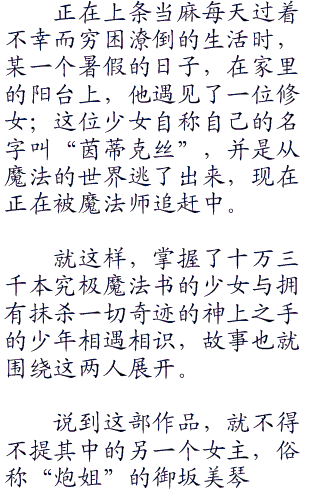 正在上条当麻每天过着
不幸而穷困潦倒的生活时，
某一个暑假的日子，在家里
的阳台上，他遇见了一位修
女；这位少女自称自己的名
字叫“茵蒂克丝”，并是从
魔法的世界逃了出来，现在
正在被魔法师追赶中。
就这样，掌握了十万三
千本究极魔法书的少女与拥
有抹杀一切奇迹的神上之手
的少年相遇相识，故事也就
围绕这两人展开。
说到这部作品，就不得
不提其中的另一个女主，俗
称“炮姐”的御坂美琴